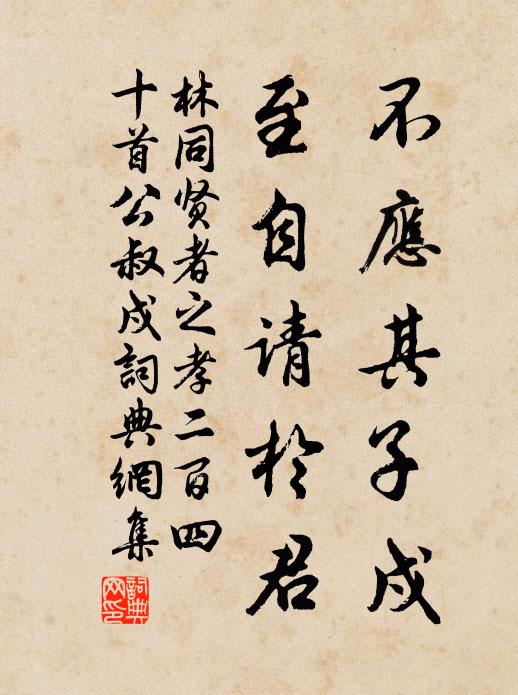 不應其子戍
至自請於君
林同賢者之孝二百四
十首公叔戍詞典網集
詞典
網印